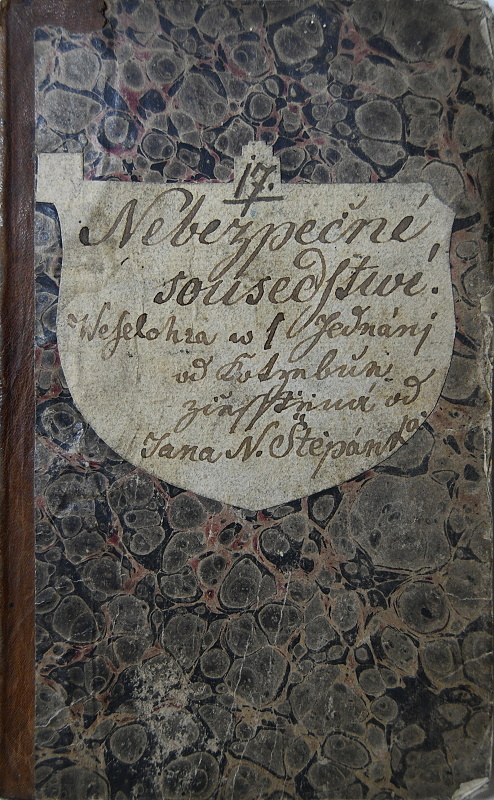 17.
Nebezpečné
sousedstwí.
Weselohra w 1 Jednánj
od Kotzebue
zčesstěná od
Jana N. Štěpánka.